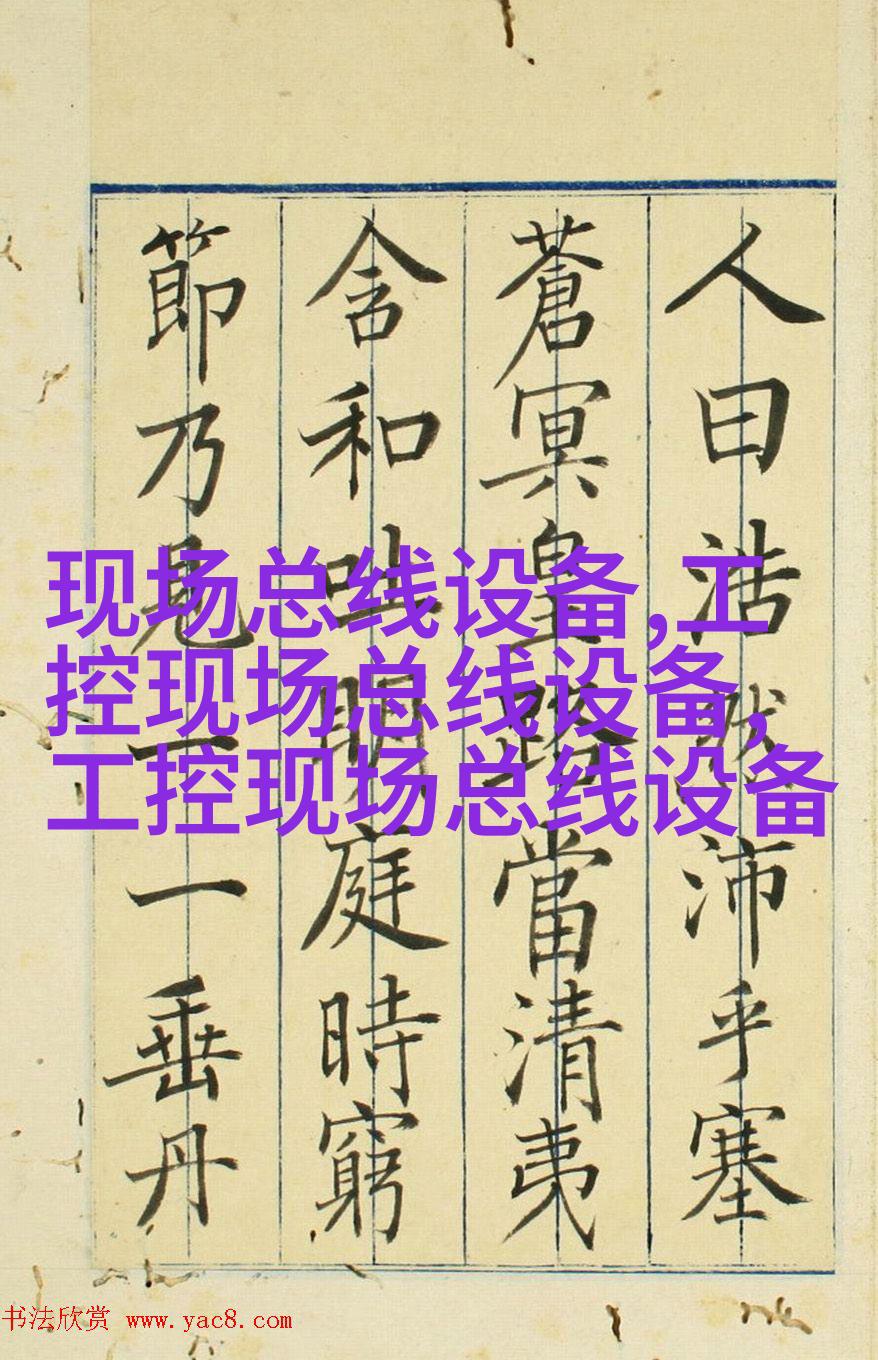 人曰浩然沛乎塞
蒼冥皇路當清夷
含和吐明庭時窮
節乃見一一垂丹
现场总线设备,工
控现场总线设备,
工控现场总线设备
书法欣赏 www.yac8.com